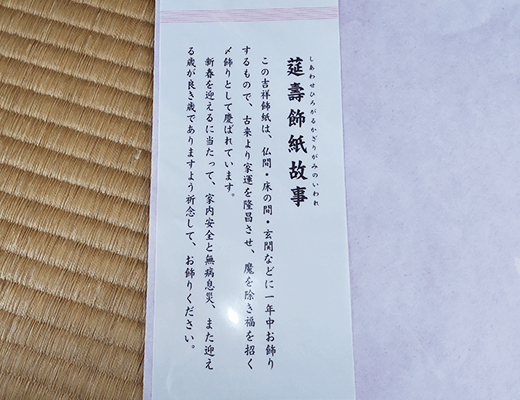 莚壽飾紙故事
しあわせひろがるかざりがみのいわれ
この吉祥飾紙は、仏間・床の間・玄関などに一年中お飾り
するもので、古来より家運を隆昌させ、魔を除き福を招く
〆飾りとして慶ばれています。
新春を迎えるに当たって、家内安全と無病息災、また迎え
る歳が良き歳でありますよう祈念して、お飾りください。